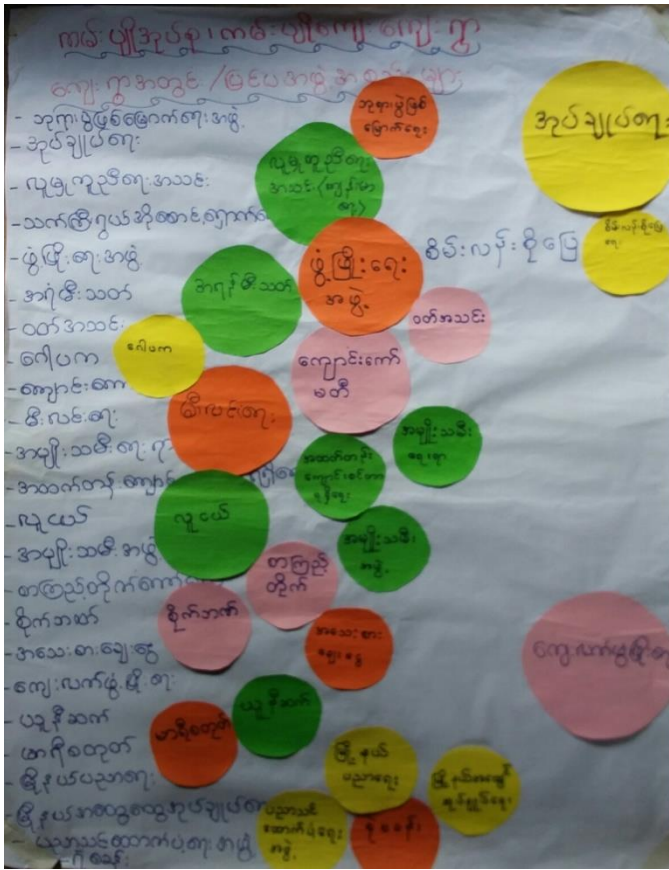 ကမ်းပျိုအုပ်စု၊ ကမ်းပျိုကျေးရွာ
ကျေးရွာအတွင်း/ပြင်ပအဖွဲ့အစည်းများ
- ဘုရားပွဲဖြစ်မြောက်ရေးအဖွဲ့
- အုပ်ချုပ်ရေး
- လူမှုကူညီရေးအသင်း
- သက်ကြီးရွယ်အိုစောင့်ရှောက်ရေး
- ဖွံ့ဖြိုးရေးအဖွဲ့
- အရံမီးသတ်
- ဝတ်အသင်း
- ဂေါပက
- ကျောင်းကော်
- မီးလင်းရေး
- အမျိုးသမီးရေးရာ
- အထက်တန်းကျောင်း
- လူငယ်
- အမျိုးသမီးအဖွဲ့
- စာကြည့်တိုက်ကော်
- စိုက်ဘဏ်
- အသေးစားချေးငွေ
- ကျေးလက်ဖွံ့ဖြိုးရေး
- ယူနီဆက်
- မာရီစတုတ်
- မြို့နယ်ပညာရေး
- မြို့နယ်အထွေထွေအုပ်ချုပ်ရေး
- ပညာသင်ထောက်ပံ့ရေးအဖွဲ့
- ရဲစခန်း
ဘုရားပွဲဖြစ်
မြောက်ရေး
အုပ်ချုပ်ရေး
လူမှုကူညီရေး
အသင်း(ကျန်းမာ
ရေး)
ဖွံ့ဖြိုးရေး
အဖွဲ့
စိမ်းလန်းစိုပြေ
စိမ်းလန်းစိုပြေ
ရေး
အရန်မီးသတ်
ဝတ်အသင်း
ဂေါပက
ကျောင်းကော်
မတီ
မီးလင်းရေး
အမျိုးသမီး
ရေးရာ
အထက်တန်း
လူငယ်
အမျိုးသမီး
အဖွဲ့
စာကြည့်
တိုက်
စိုက်ဘဏ်
အသေးစား
ချေးငွေ
ကျေးလက်ဖွံ့ဖြိုးရေး
ယူနီဆက်
မာရီစတုတ်
မြို့နယ်
ပညာရေး
မြို့နယ်အထွေထွေ
အုပ်ချုပ်ရေး
ပညာသင်
ထောက်ပံ့ရေး
အဖွဲ့
ရဲစခန်း